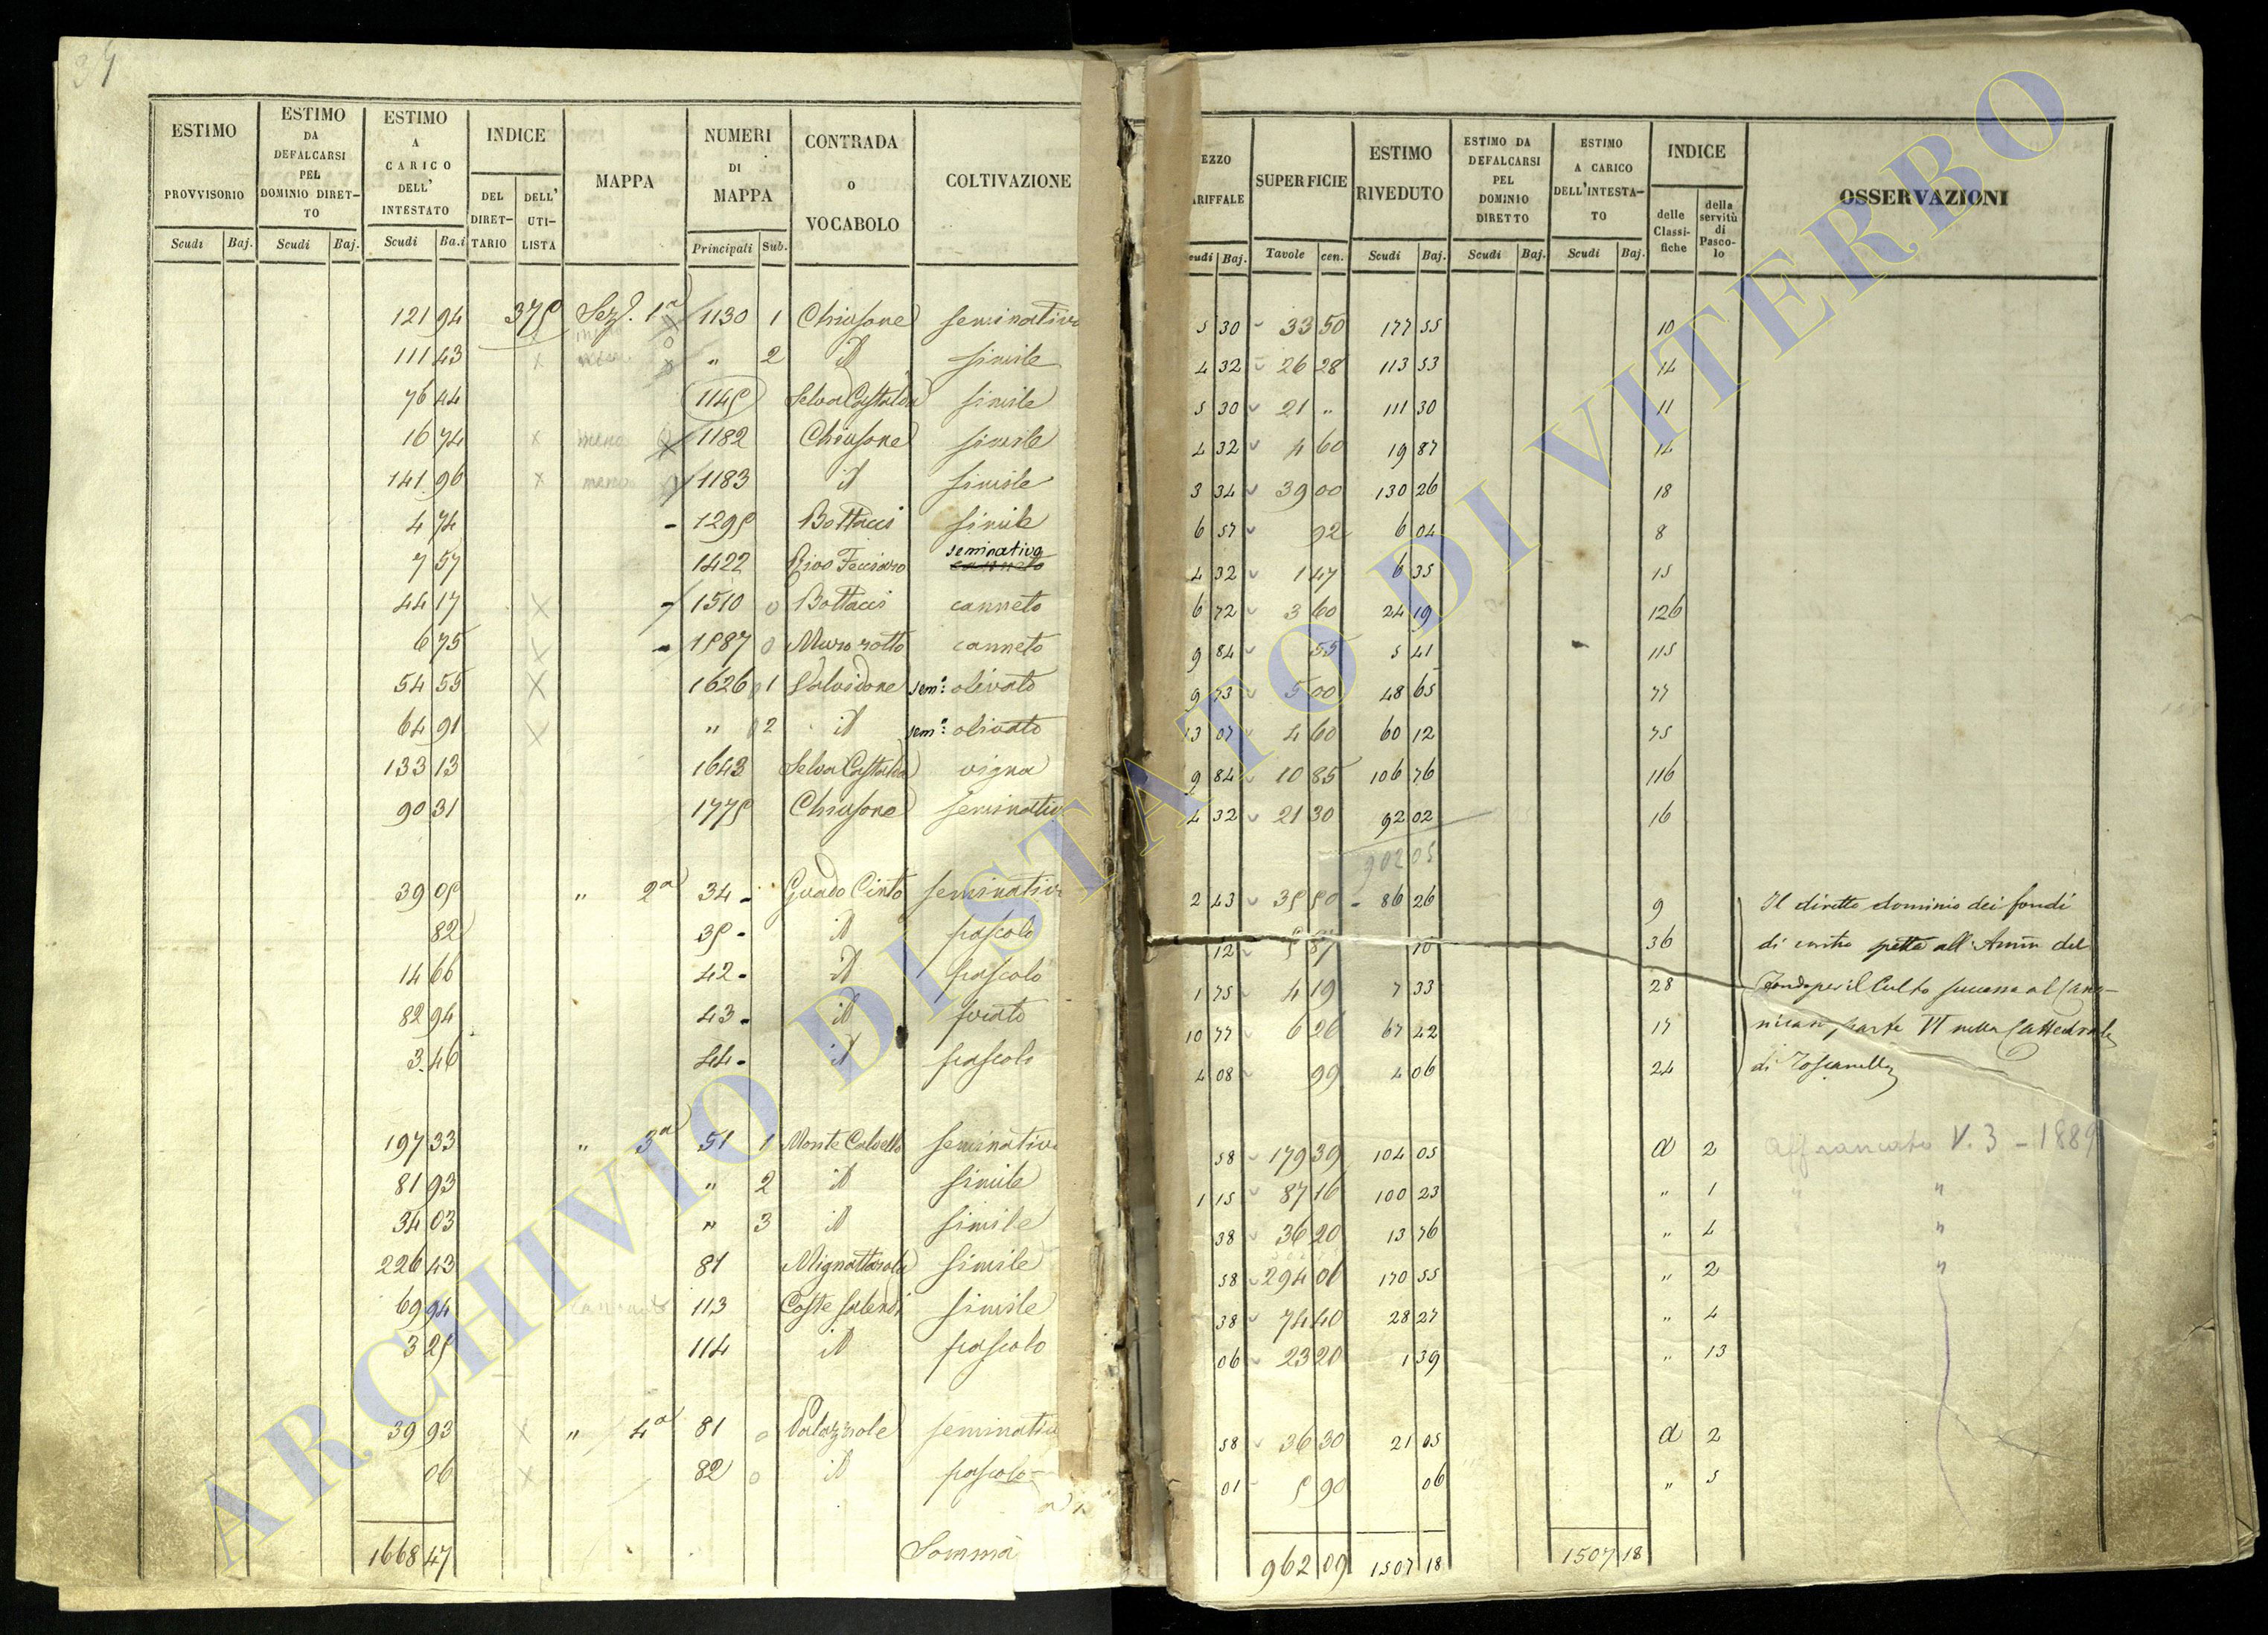 34
ESTIMO PROVVISORIO Scudi Baj.
ESTIMO DA DEFALCARSI PEL DOMINIO DIRET-TO Scudi Baj.
ESTIMO A CARICO DELL' INTESTATO Scudi Ba.i
INDICE DEL DIRET-TARIO DELL' UTI-LISTA
MAPPA
NUMERI DI MAPPA Principali Sub.
CONTRADA O VOCABOLO
COLTIVAZIONE
EZZO ARIFFALE eudi Baj.
SUPERFICIE Tavole cen.
ESTIMO RIVEDUTO Scudi Baj.
ESTIMO DA DEFALCARSI PEL DOMINIO DIRETTO Scudi Baj.
ESTIMO A CARICO DELL'INTESTA-TO Scudi Baj.
INDICE delle Classi-fiche della servitù di Pasco-lo
OSSERVAZIONI
121 94 375 Sez. 1a 1130 1 Chiusone seminativo 5 30 33 50 177 55 10
111 43 " 2 id simile 4 32 26 28 113 53 14
76 44 1145 Selva Castalda simile 5 30 21 " 111 30 11
16 74 meno 1182 Chiusone simile 4 32 4 60 19 87 14
141 96 meno 1183 id simile 3 34 39 00 130 26 18
4 74 - 1295 Bottacci simile 6 57 92 6 04 8
7 57 1422 Rivo seminativo canneto 4 32 1 47 6 35 15
44 17 1510 0 Bottacci canneto 6 72 3 60 24 19 126
6 75 1587 0 Muro rotto canneto 9 84 55 5 41 115
54 55 1626 1 Valvidone sem.° olivato 9 73 5 00 48 65 77
64 91 " 2 id sem.° olivato 13 07 4 60 60 12 75
133 13 1643 Selva Castalda vigna 9 84 10 85 106 76 116
90 31 1775 Chiusone seminativ 4 32 21 30 92 02 16
902 05
39 05 " 2a 34 - Guado Cinto seminativ 2 43 35 50 - 86 26 9 Il diretto dominio dei fondi
82 35 - id pascolo 12 5 87 10 36 di contro spetta all'Amm del
14 66 42 - id pascolo 1 75 4 19 7 33 28 Fondo per il Culto successa al Cano-
82 94 43 - id prato 10 77 6 26 67 42 17 nicato parte VI nella Cattedrale
3 46 44 - id pascolo 4 08 99 4 06 24 di Toscanella
197 33 " 3a 51 1 Monte Calvello seminativo 58 179 39 104 05 a 2 Affrancato V. 3 - 1889
81 93 " 2 id simile 1 15 87 16 100 23 " 1 " "
34 03 " 3 id simile 38 36 20 13 76 " 4 "
226 43 87 Mignattarola simile 58 294 06 170 55 " 2 "
69 94 113 Coste simile 38 74 40 28 27 " 4
3 25 114 id pascolo 06 23 20 1 39 " 13
39 93 " 4a 81 0 Palazzole seminativ 58 36 30 21 05 a 2
06 82 0 id pascolo 01 5 90 06 " 5
1668 47 Somma 962 09 1507 18 1507 18
ARCHIVIO DI STATO DI VITERBO